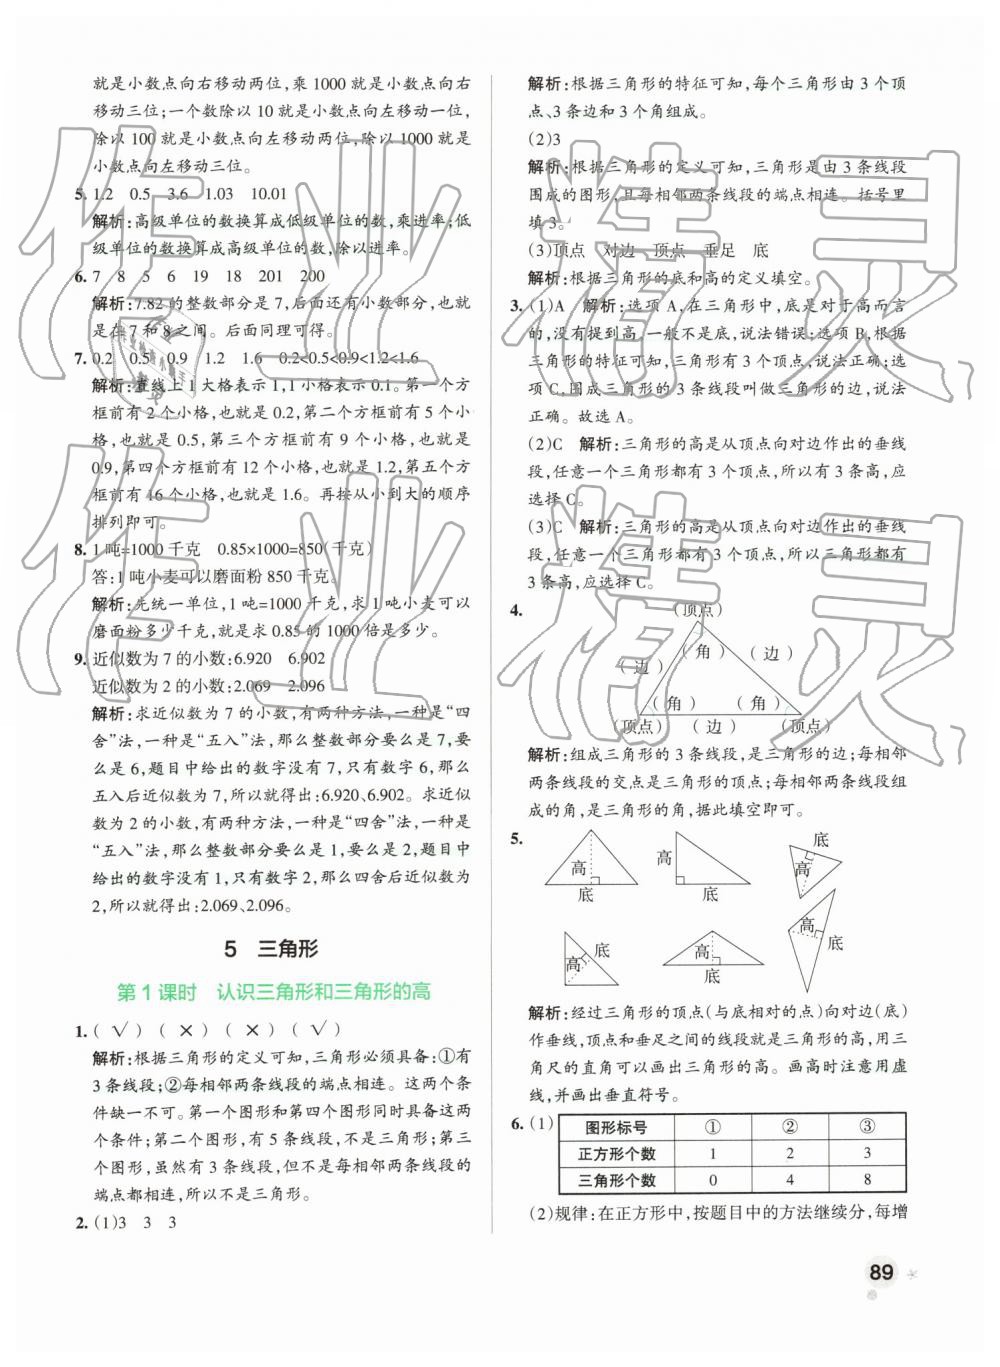 就是小数点向右移动两位,乘1000就是小数点向右
移动三位;一个数除以10就是小数点向左移动一位,
除以100就是小数点向左移动两位,除以1000就是
小数点向左移动三位。
5. 1.2 0.5 3.6 1.03 10.01
解析:高级单位的数换算成低级单位的数,乘进率;低
级单位的数换算成高级单位的数,除以进率。
6. 7 8 5 6 19 18 201 200
解析:7.82的整数部分是7,后面还有小数部分,也就
是在7和8之间。后面同理可得。
7. 0.2 0.5 0.9 1.2 1.6 0.2<0.5<0.9<1.2<1.6
解析:直线上1大格表示1,1小格表示0.1。第一个方
框前有2个小格,也就是0.2,第二个方框前有5个小
格,也就是0.5,第三个方框前有9个小格,也就是
0.9,第四个方框前有12个小格,也就是1.2,第五个方
框前有16个小格,也就是1.6。再按从小到大的顺序
排列即可。
8. 1吨=1000千克 0.85×1000=850(千克)
答:1吨小麦可以磨面粉850千克。
解析:先统一单位,1吨=1000千克,求1吨小麦可以
磨面粉多少千克,就是求0.85的1000倍是多少。
9. 近似数为7的小数:6.920 6.902
近似数为2的小数:2.069 2.096
解析:求近似数为7的小数,有两种方法,一种是“四
舍”法,一种是“五入”法,那么整数部分要么是7,要
么是6,题目中给出的数字没有7,只有数字6,那么
五入后近似数为7,所以就得出:6.920、6.902。求近似
数为2的小数,有两种方法,一种是“四舍”法,一种是
“五入”法,那么整数部分要么是1,要么是2,题目中
给出的数字没有1,只有数字2,那么四舍后近似数为
2,所以就得出:2.069、2.096。
5 三角形
第1课时 认识三角形和三角形的高
1. (√) (×) (×) (√)
解析:根据三角形的定义可知,三角形必须具备:①有
3条线段;②每相邻两条线段的端点相连。这两个条
件缺一不可。第一个图形和第四个图形同时具备这两
个条件;第二个图形,有5条线段,不是三角形;第三
个图形,虽然有3条线段,但不是每相邻两条线段的
端点都相连,所以不是三角形。
2. (1)3 3 3
解析:根据三角形的特征可知,每个三角形由3个顶
点、3条边和3个角组成。
(2)3
解析:根据三角形的定义可知,三角形是由3条线段
围成的图形,且每相邻两条线段的端点相连。括号里
填3。
(3)顶点 对边 顶点 垂足 底
解析:根据三角形的底和高的定义填空。
3. (1)A 解析:选项A,在三角形中,底是对于高而言
的,没有提到高,一般不是底,说法错误;选项B,根据
三角形的特征可知,三角形有3个顶点,说法正确;选
项C,围成三角形的3条线段叫做三角形的边,说法
正确。故选A。
(2)C 解析:三角形的高是从顶点向对边作出的垂线
段,任意一个三角形都有3个顶点,所以有3条高,应
选择C。
(3)C 解析:三角形的高是从顶点向对边作出的垂线
段,任意一个三角形都有3个顶点,所以三角形都有
3条高,应选择C。
4.
(顶点)
(角)
(边) (边)
(角) (角)
(顶点) (边) (顶点)
解析:组成三角形的3条线段,是三角形的边;每相邻
两条线段的交点是三角形的顶点;每相邻两条线段组
成的角,是三角形的角,据此填空即可。
5.
高 底
高 底
底 高
高 底
高 底
高 底
解析:经过三角形的顶点(与底相对的点)向对边(底)
作垂线,顶点和垂足之间的线段就是三角形的高,用三
角尺的直角可以画出三角形的高。画高时注意用虚
线,并画出垂直符号。
6. (1)
图形标号 ① ② ③
正方形个数 1 2 3
三角形个数 0 4 8
(2)规律:在正方形中,按题目中的方法继续分,每增
89
作业精灵
作业精灵